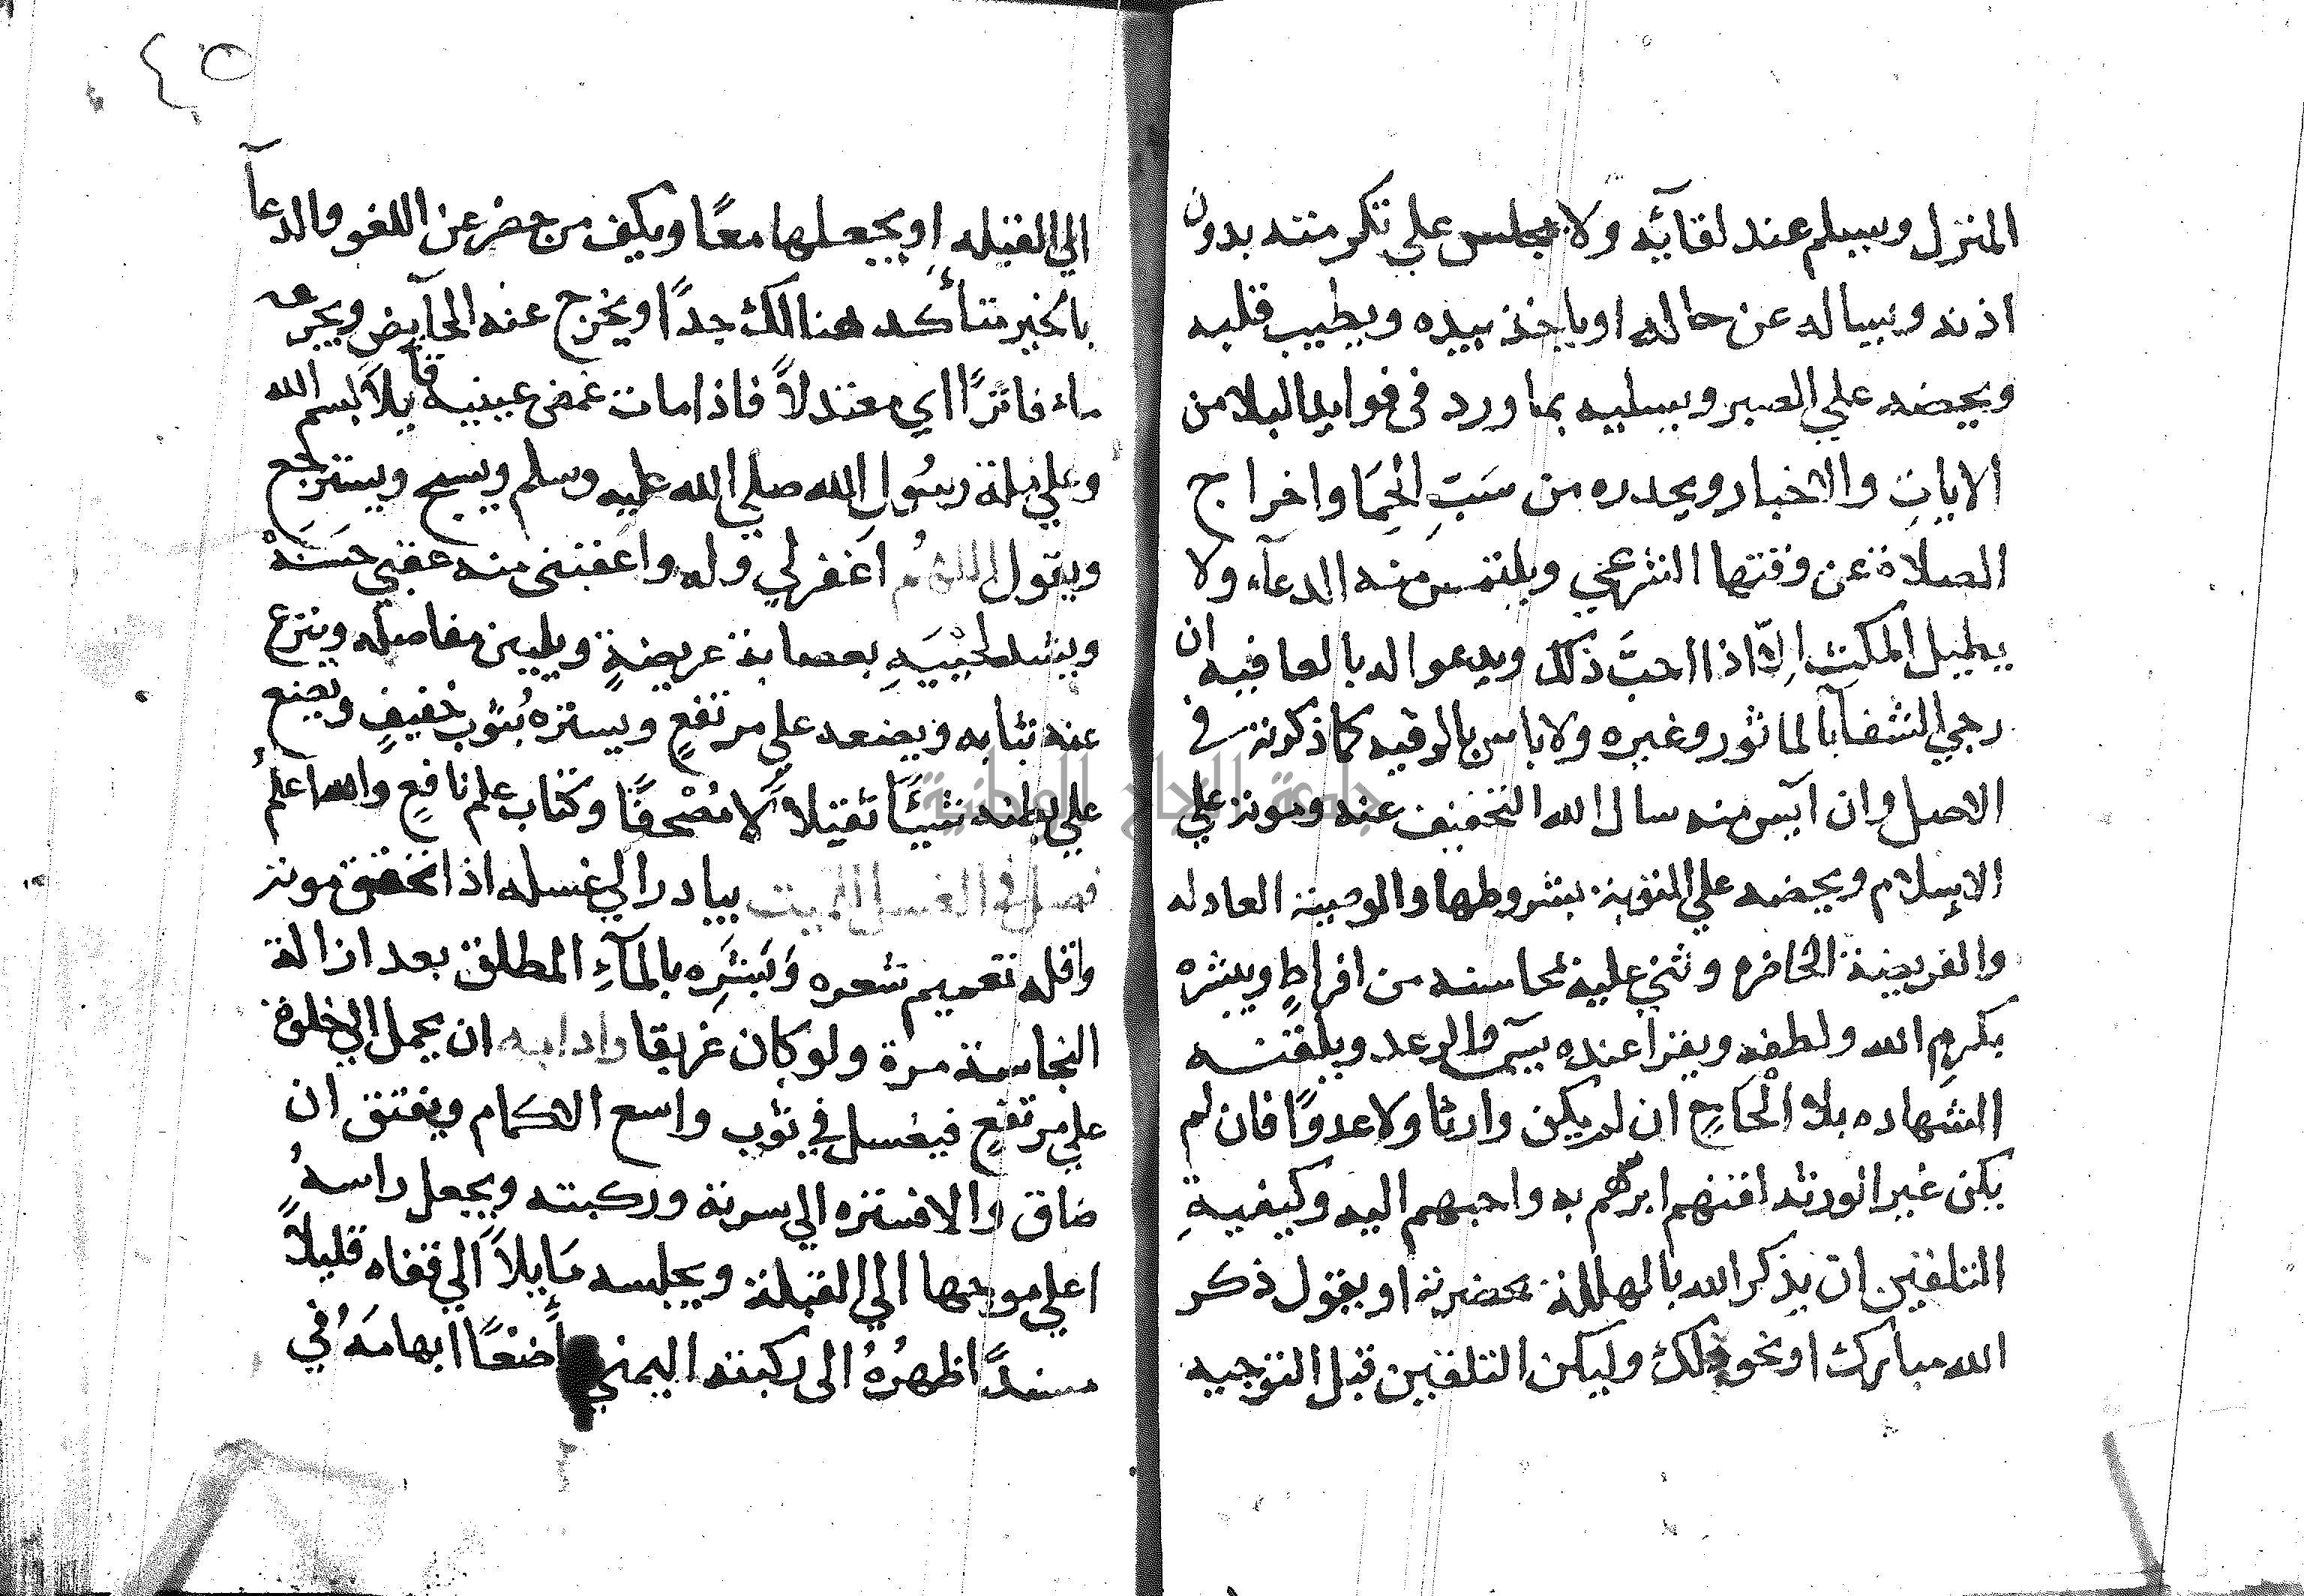 المنزل ويسلم عند لقآيه ولا يجلس علي تكرمته بدون
اذنه ويساله عن حاله او ياخذ بيده ويطيب قلبه
ويحضه علي الصبر ويسليه بما ورد في فوايد البلا من
الايات والاخبار ويحذره من سَبِّ الحُمَا واخراج
الصلاة عن وقتها الشرعي ويلتمس منه الدعآء ولا
يطيل المكث اِلاّ اذا احبَّ ذلك ويدعوا له بالعافيه ان
رجي الشفآ بالماثور وغيره ولا باس بالرقيه كما ذكرته في
الاصل وان آيس منه سال الله التخفيف عنه وموته علي
الاسلام ويحضه علي التوبة بشروطها والوصية العادله
والفريضة الحاضره وثني عليه بمحاسنه من افراطٍ ويبشره
بكرمِ الله ولطفه ويقرا عنده يسٓ والرعد ويلقنه
الشهاده بلا الْحَاحٍ ان لم يكن وارثا ولا عدوًا فان لم
يكن غير الورثه لقنهم ابرهم به واحبهم اليه وكيفيةِ
التلقين ان يذكر الله بالهللة بحضرته او يقول ذكر
الله مبارك او نحو ذلك وليكن التلقين قبل التوجيه
٤٥
الي القبله او يجعلها معًا ويكف من حضر عن اللغو والدعآ
بالخير متأكد هنالك جدًا ويخرج عنه الحآيض ويجرعه
ماء فاترًا اي معتدلاً فاذا مات غمض عينيه قآيلاً بسم الله
وعلي ملة رسُول الله صلي الله عليه وسلم ويسبح ويسترجع
ويقول اللهُم اغفر لي وله واعقبني منه عقبي حسَنَةْ
ويشد لَحْييَهِ بعصابة عريضةٍ ويليين مفاصله وينزع
عنه ثيابه ويضعه علي مرتفعٍ ويستره بُثوبٍ خفيفٍ ويضع
علي بطنه شيًا ثقيلاً لا مُصْحفًا وكتاب علم نافعٍ والله اعلمُ
فصل في الغسل الميت يبادر الي غسله اذا تحقق موته
واقله تعميم شعره وَبَشَرِه بالمآءِ المطلق بعد ازالة
النجاسة مرة ولو كان غريقا وادابه ان يحمل الي خلوة
علي مرتفعٍ فيغسل في ثوبٍ واسع الاكمام ويفتق ان
ضاق والا فستره الي سرته وركبته ويجعل راسهُ
اعلي موجها الي القبلة ويجلسه مَايلاً الي قفاه قليلاً
مسندًا ظهرُهُ الى ركبته اليمني أضعًا ابهامَهُ في
جامعة النجاح الوطنية